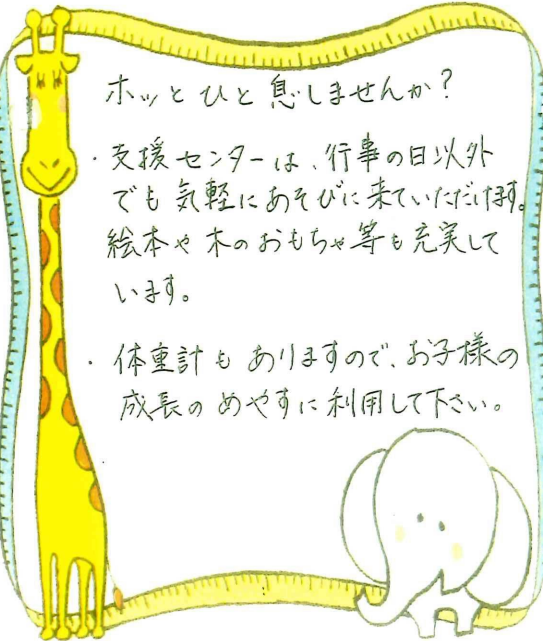 ホッとひと息しませんか?
・支援センターは、行事の日以外
でも気軽にあそびに来ていただけます。
絵本や木のおもちゃ等も充実して
います。
・体重計もありますので、お子様の
成長のめやすに利用して下さい。